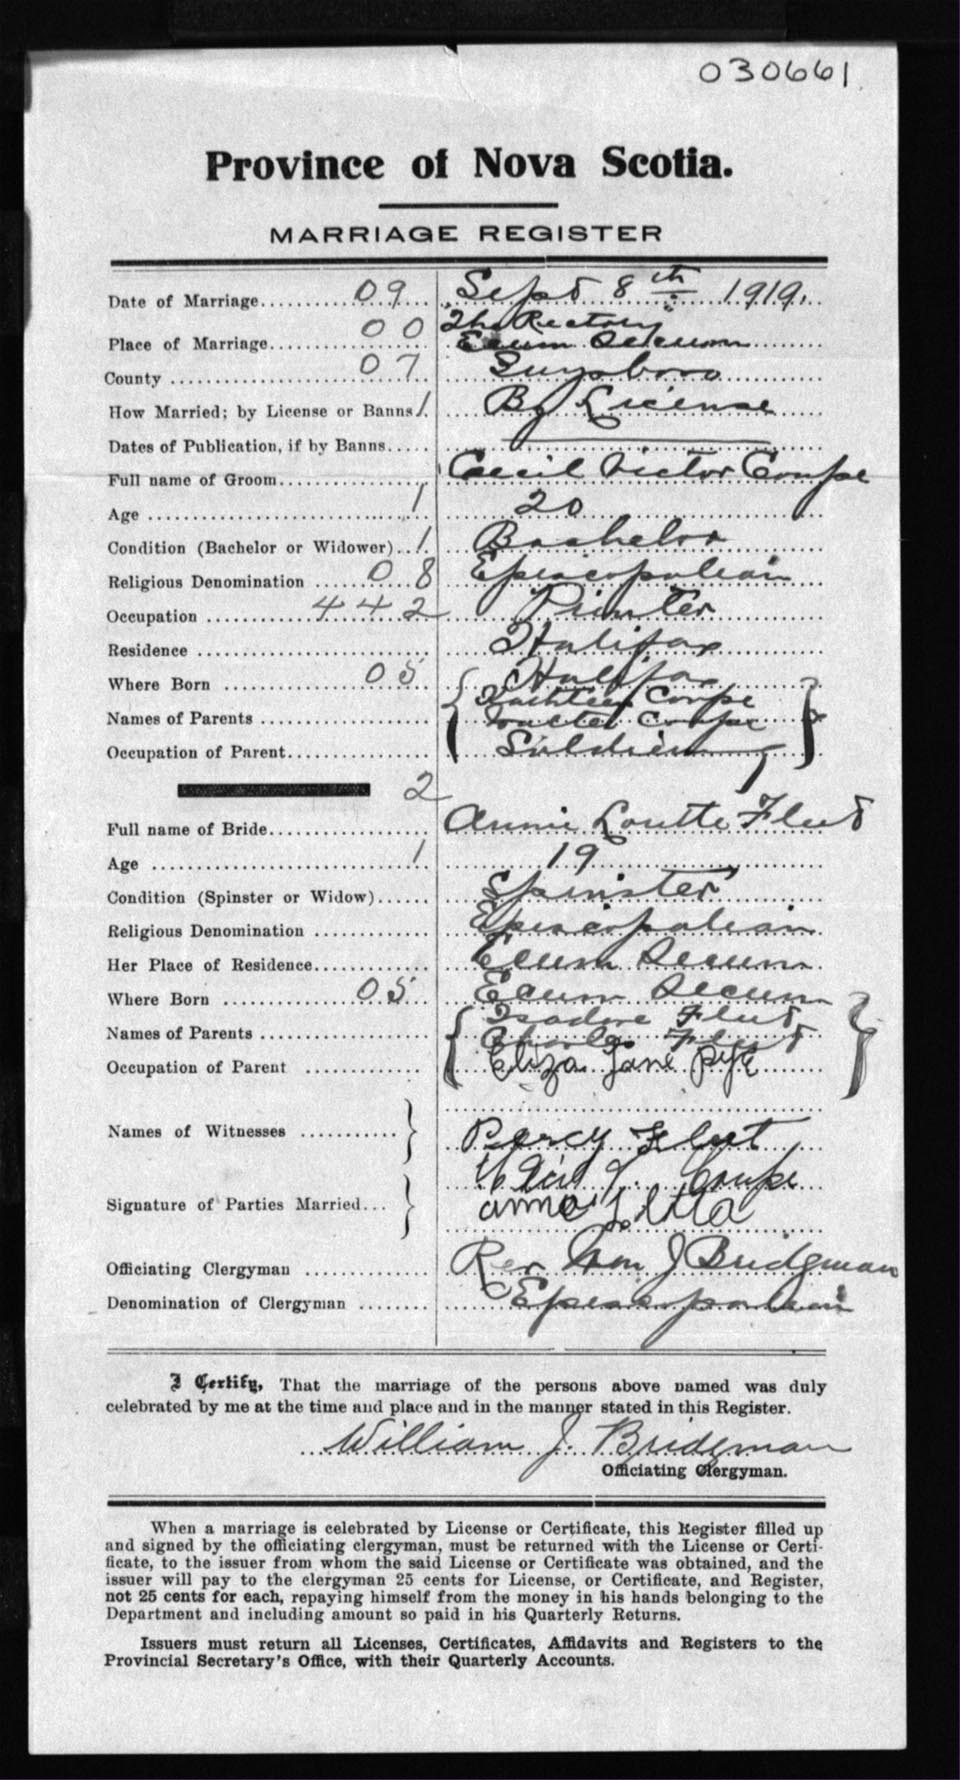 030661
Province of Nova Scotia.
MARRIAGE REGISTER
Date of Marriage 09 Sept 8th 1919.
Place of Marriage 00 The Rectory Ecum Secum
County 07 Guysboro
How Married; by License or Banns 1 By License
Dates of Publication, if by Banns
Full name of Groom Cecil Victor Coupe
Age 1 20
Condition (Bachelor or Widower) 1 Bachelor
Religious Denomination 08 Episcopalian
Occupation 442 Printer
Residence Halifax
Where Born 05 Halifax
Names of Parents Kathleen Coupe
Coupe
Occupation of Parent Soldier
2
Full name of Bride Annie Fleet
Age 1 19
Condition (Spinster or Widow) Spinster
Religious Denomination Episcopalian
Her Place of Residence Ecum Secum
Where Born 05 Ecum Secum
Names of Parents Isadore Fleet
Charles Fleet
Occupation of Parent Eliza Jane Pye
Names of Witnesses Percy Fleet
Coupe
Signature of Parties Married
Officiating Clergyman Rev Wm J Bridgman
Denomination of Clergyman Episcopalian
I Certify, That the marriage of the persons above named was duly
celebrated by me at the time and place and in the manner stated in this Register.
William J. Bridgman
Officiating Clergyman.
When a marriage is celebrated by License or Certificate, this Register filled up
and signed by the officiating clergyman, must be returned with the License or Certi-
ficate, to the issuer from whom the said License or Certificate was obtained, and the
issuer will pay to the clergyman 25 cents for License, or Certificate, and Register,
not 25 cents for each, repaying himself from the money in his hands belonging to the
Department and including amount so paid in his Quarterly Returns.
Issuers must return all Licenses, Certificates, Affidavits and Registers to the
Provincial Secretary's Office, with their Quarterly Accounts.